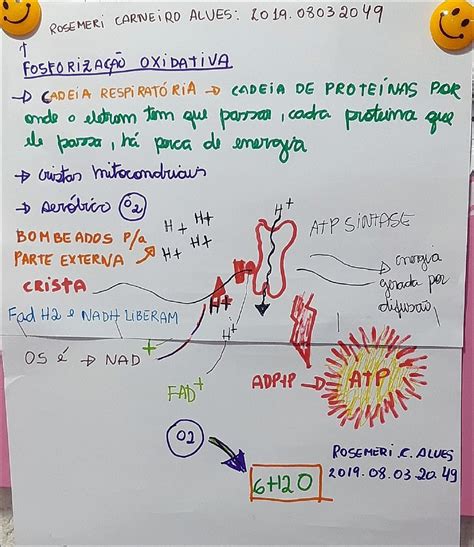 ROSEMERI CARNEIRO ALVES: 2019.08032049
FOSFORIZAÇÃO OXIDATIVA
→ CADEIA RESPIRATÓRIA → CADEIA DE PROTEÍNAS POR
onde o eletron tem que passar, cada proteina que
ele passa, há perca de energia
→ cristas mitocondriais
→ aeróbico O2
H+
H+ H+
H+ H+
ATP SINTASE
BOMBEADOS P/a
PARTE EXTERNA
energia
gerada por
difusão
CRISTA
H+
H+
Fad H2 e NADH LIBERAM
OS é → NAD+
FAD+
ADP+P → ATP
O2
6H2O
ROSEMERI C. ALVES
2019.08.03.20.49